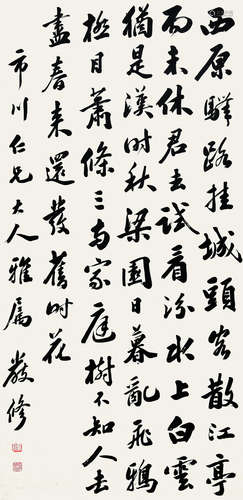 西原驛路挂城頭客散江亭
雨未休君去試看汾水上白雲
猶是漢時秋梁園日暮亂飛鴉
極目蕭條三兩家庭樹不知人去
盡春來還發舊時花
市川仁兄大人雅屬 嚴修